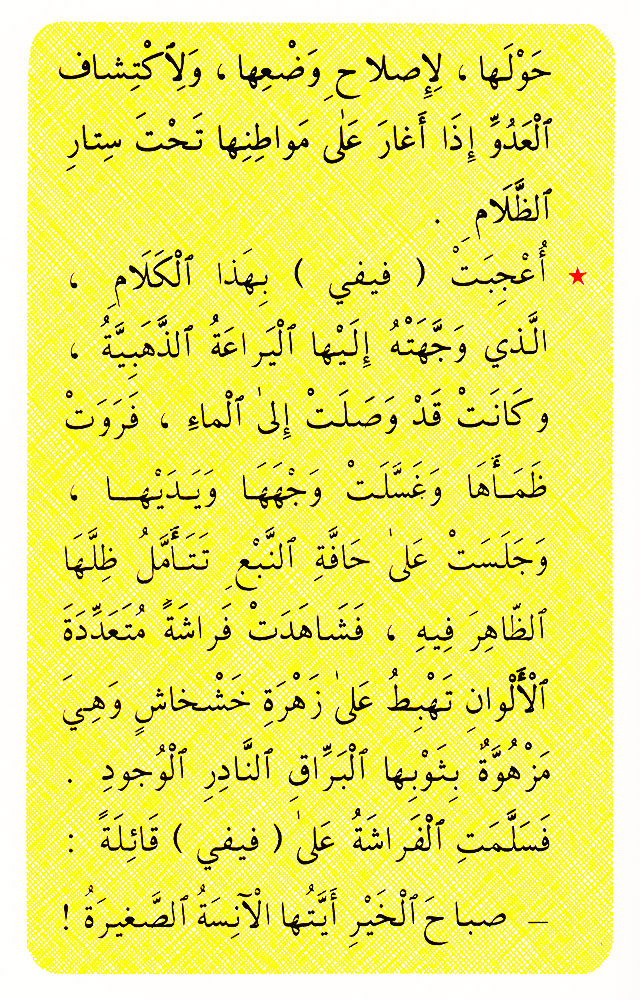 حَوْلَها ، لِإِصلاحِ وَضْعِها ، وَلِٱكْتِشاف
ٱلْعَدُوِّ إِذَا أَغارَ عَلٰى مَواطِنِها تَحْتَ سِتارِ
ٱلظَّلَامِ .
★ أُعْجِبَتْ ( فيفي ) بِهَذا ٱلْكَلَامِ ،
الَّذي وَجَّهَتْهُ إِلَيْها ٱلْيَراعَةُ ٱلذَّهَبِيَّةُ ،
وكَانَتْ قَدْ وَصَلَتْ إِلىٰ ٱلْماءِ ، فَرَوَتْ
ظَمَـأَهَا وَغَسَّلَتْ وَجْهَهَا وَيَـدَيْهـــا ،
وَجَلَسَتْ عَلىٰ حَافَّةِ ٱلنَّبْعِ تَتَـأَمَّلُ ظِلَّهَا
ٱلظّاهِرَ فِيهِ ، فَشَاهَدَتْ فَراشَةً مُتَعَدِّدَةَ
ٱلْأَلْوانِ تَهْبِطُ عَلىٰ زَهْرَةِ خَشْخاشٍ وَهِيَ
مَزْهُوَّةٌ بِثَوْبِها ٱلْبَرَّاقِ ٱلنَّادِرِ ٱلْوُجودِ .
فَسَلَّمَتِ ٱلْفَراشَةُ عَلىٰ ( فيفي ) قَائِلَةً :
— صباحَ ٱلْخَيْرِ أَيَّتُـها الْآنِسَةُ ٱلصَّغيرَةُ !